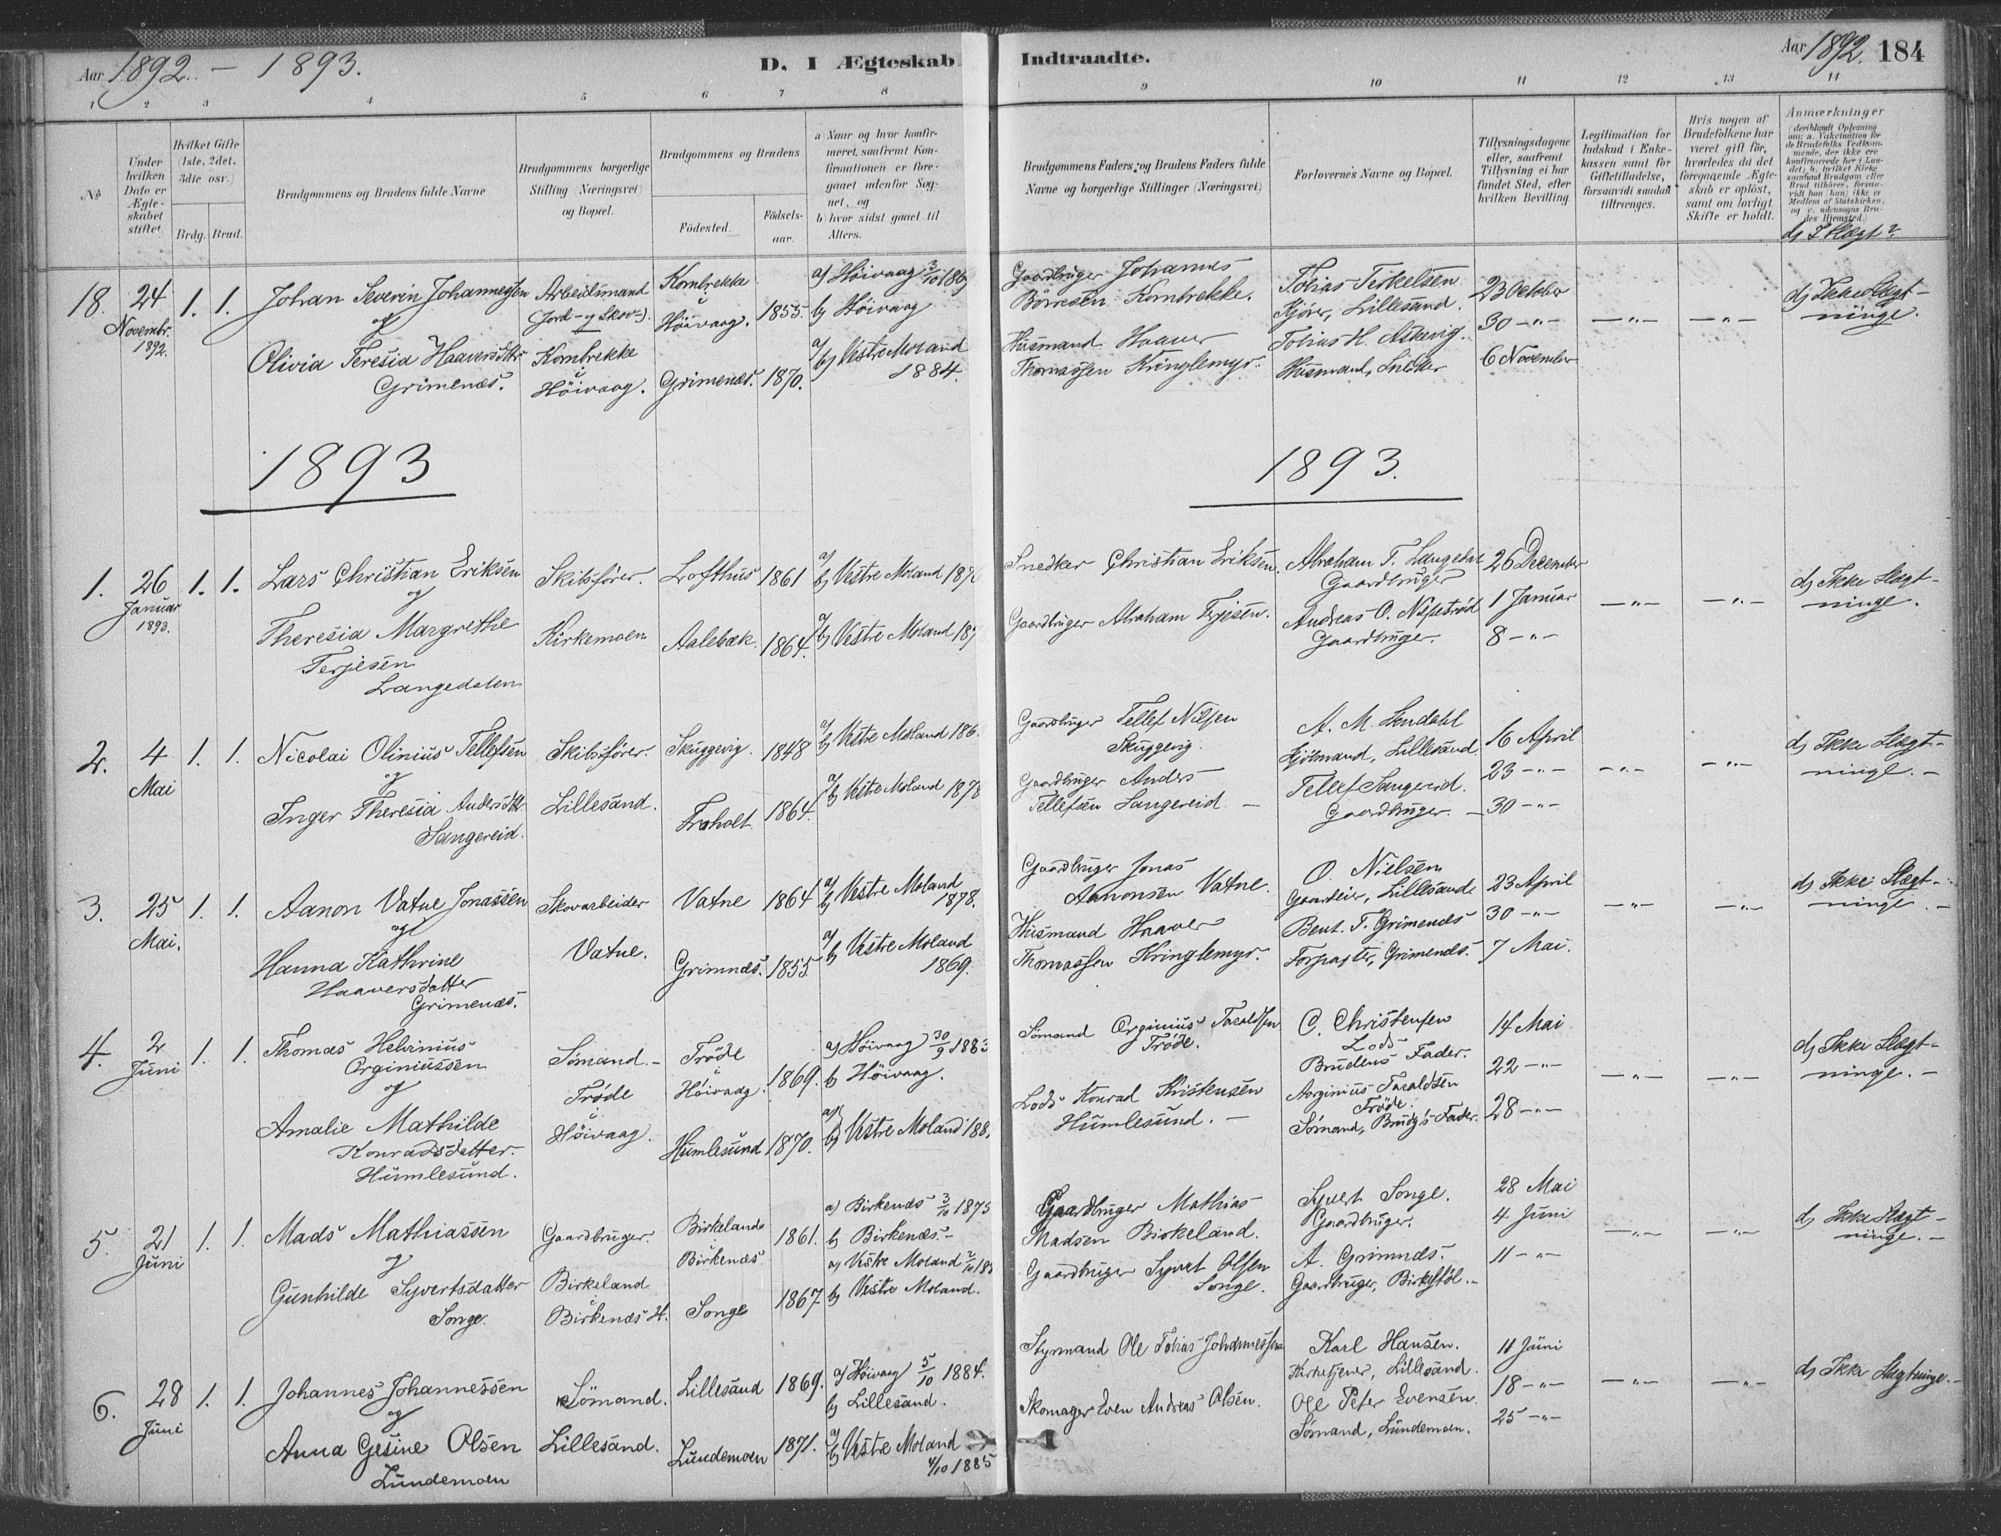 Aar 1892. – 1893.
D. I Ægteskab Indtraadte.
Aar 1892. 184
1 2 3 4 5 6 7 8 9 10 11 12 13 14
No
Under hvilken Dato er Ægteskabet stiftet.
Hvilket Gifte (1ste, 2det, 3die osv.)
Brdg. Brud.
Brudgommens og Brudens fulde Navne
Brudgommens borgerlige Stilling (Næringsvei) og Bopæl.
Brudgommens og Brudens
Fødested. Fødselsaar.
a) Naar og hvor konfirmeret, saafremt Konfirmationen er foregaaet udenfor Sognet, og
b) hvor sidst gaaet til Alters.
Brudgommens Faders og Brudens Faders fulde Navne og borgerlige Stillinger (Næringsvei)
Forlovernes Navne og Bopæl.
Tillysningsdagene eller, saafremt Tillysning ei har fundet Sted, efter hvilken Bevilling
Legitimation for Indskud i Enkekassen samt for Giftetilladelse, forsaavidt saadan tiltrænges.
Hvis nogen af Brudefolkene har været gift før, hvorledes da det foregaaende Ægteskab er opløst, samt om lovligt Skifte er holdt.
Anmærkninger
d) I Slægt?
18. 24 Novembr. 1892. 1. 1.
Johan Severin Johannessen
og
Olivia Teresia Haaversdttr
Grimenæs.
Arbeidsmand
(Jord- og Skov-).
Kombrekke
i
Høivaag.
Kombrekke
i
Høivaag. 1855.
Grimenæs. 1870.
a) Høivaag 3/10 1869
b) Høivaag
a) b) Vestre Moland
1884.
Gaardbruger Johannes
Børresen Kombrekke.
Husmand Haaver
Thomassen Kringlemyr.
Tobias Terkelsen
Kjøre, Lillesand.
Tobias H. Askevig.
Husmand, Snedker
23 October
30 – " –
6 November
– " – – " –
d) Ikke Slægtninge.
1893
1893.
1. 26 Januar 1893. 1. 1.
Lars Christian Eriksen
og
Theresia Margrethe
Terjesen
Langedalen
Skibsfører.
Kirkemoen
Lofthus 1861
Aalebæk. 1864.
a) b) Vestre Moland 187
a) b) Vestre Moland 187
Snedker Christian Eriksen.
Gaardbruger Abraham Terjesen.
Abraham T. Langedal
Gaardbruger
Andreas O. Næpstrød
Gaardbruger.
26 December
1 Januar
8 – " –
– " – – " –
d) Ikke Slægtninge.
2. 4 Mai 1. 1.
Nicolai Olinius Tellefsen
og
Inger Theresia Andersdttr
Sangereid.
Skibsfører.
Lillesand.
Skuggevig. 1848
Froholt 1864.
a) b) Vestre Moland 186
a) b) Vestre Moland 1878
Gaardbruger Tellef Nilsen
Skuggevig.
Gaardbruger Anders
Tellefsen Sangereid. –
A. M. Sundahl
Kjøbmand, Lillesand
Tellef Sangereid.
Gaardbruger. –
16 April
23 – " –
30 – " –
– " – – " –
d) Ikke Slægtninge. –
3. 25 Mai. 1. 1.
Aanon Vatne Jonassen
og
Hanna Kathrine
Haaversdatter
Grimenæs.
Skovarbeider
Vatne.
Vatne 1864
Grimnæs. 1855
a) b) Vestre Moland
1878.
a) b) Vestre Moland
1869.
Gaardbruger Jonas
Aanonsen Vatne.
Husmand Haaver
Thomassen Kringlemyr.
O. Nielsen
Gaardeier, Lillesand
Bent. T. Grimenæs
Forpagter, Grimenæs.
23 April
30 – " –
7 Mai.
– " – – " –
d) Ikke Slægtninge. –
4. 2 Juni 1. 1.
Thomas Helvinius
Orginiussen
og
Amalie Mathilde
Konradsdatter.
Humlesund.
Sømand. –
Trøde
i
Høivaag.
Trøde
i
Høivaag. 1869.
Humlesund 1870.
a) Høivaag 30/9 1883
b) Høivaag.
a) b) Vestre Moland 188
Sømand Orginius Taraldsen
Trøde.
Lods Konrad Kristensen
Humlesund. –
C. Christensen
Lods
Brudens Fader.
Aorginius Taraldsen
Trøde.
Sømand, Brudg's Fader.
14 Mai
22 – " –
28 – " –
– " – – " –
d) Ikke Slægtninge. –
5. 21 Juni 1. 1.
Mads Mathiassen
og
Gunhilde Syvertsdatter
Songe.
Gaardbruger.
Birkeland
i
Birkenæs H.
Birkeland
Birkenæs 1861.
Songe 1867
a) Birkenæs 3/10 1875
b) Birkenæs. –
a) Vestre Moland
b) Vestre Moland.
Gaardbruger Mathias
Madsen Birkeland.
Gaardbruger Syvert Olsen
Songe.
Syvert Songe.
Gaardbruger.
A. Grimnæs.
Gaardbruger, Birkestøl. –
28 Mai
4 Juni
11 – " –
– " – – " –
d) Ikke Slægtninge. –
6. 28 Juni 1. 1.
Johannes Johannessen
og
Anna Gesine Olsen
Lundemoen
Sømand.
Lillesand.
Lillesand 1869.
Lundemoen 1871.
a) Høivaag 5/10 1884.
b) Lillesand.
a) b) Vestre Moland
4/10 1885
Styrmand Ole Tobias Johannessen
Skomager Even Andreas Olsen.
Karl Hansen.
Kirketjener, Lillesand.
Ole Peter Evensen
Sømand, Lundemoen.
11 Juni
18 – " –
25 – " –
– " – – " –
d) Ikke Slægtninge. –